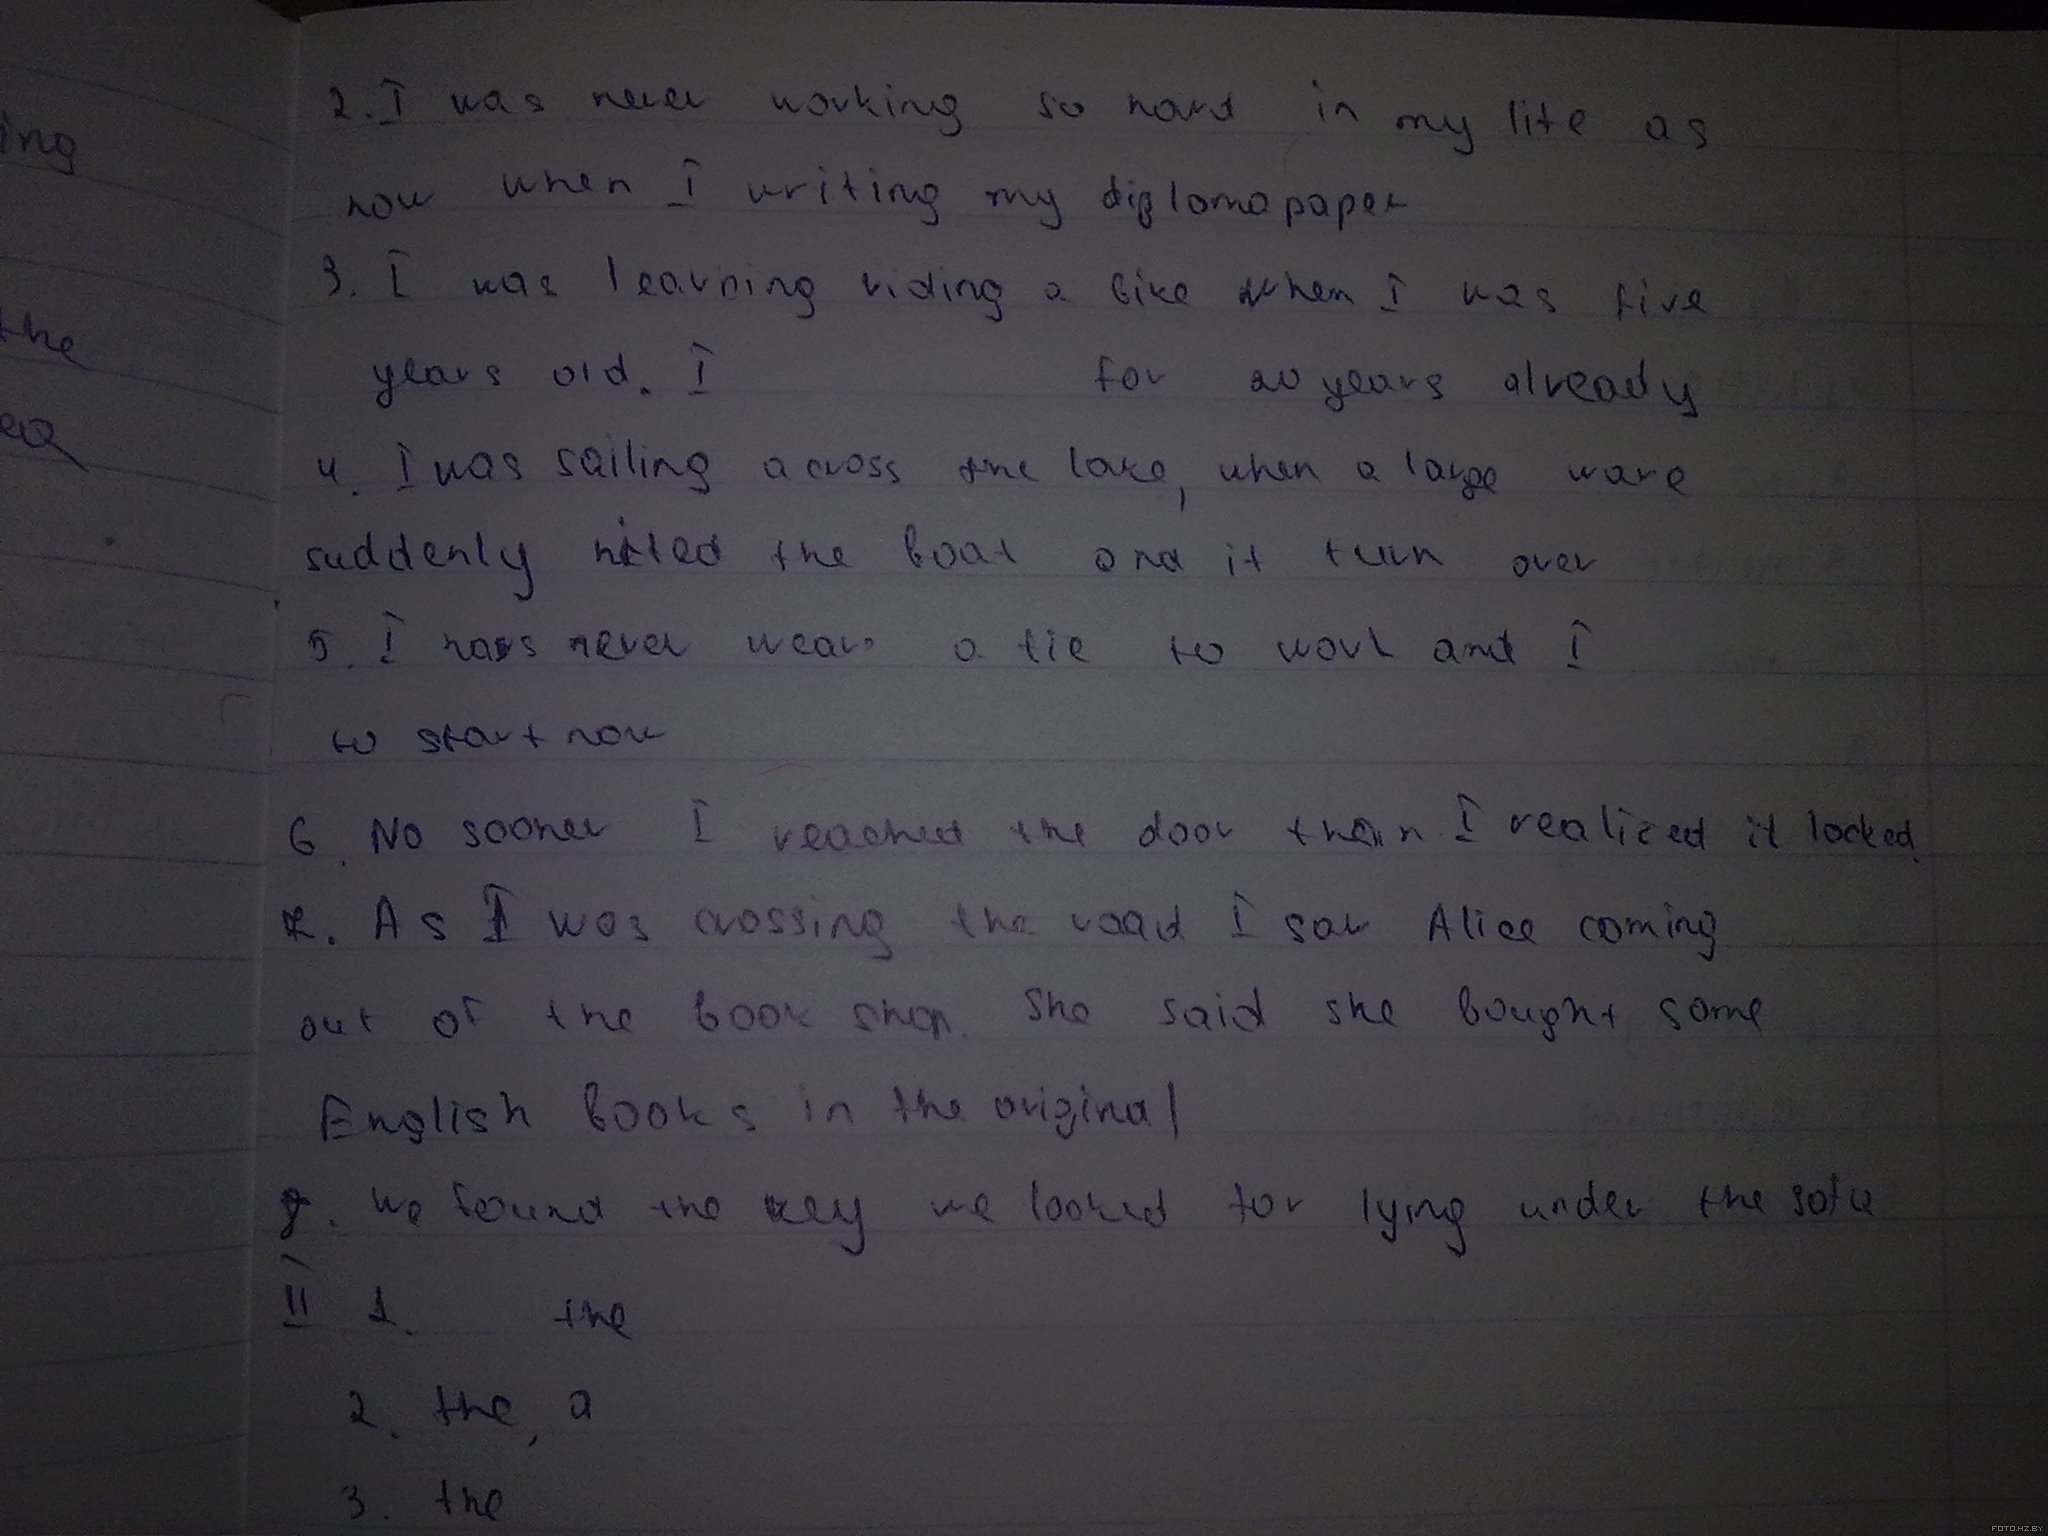 ing
the
2. I was never working so hard in my life as
now when I writing my diplomapaper
3. I was learning riding a bike when I was five
years old. I for 20 years already
4. I was sailing across the lake, when a large wave
suddenly hited the boat and it turn over
5. I has never wear a tie to work and I
to start now
6. No sooner I reached the door than I realized it locked.
7. As I was crossing the road I saw Alice coming
out of the book shop. She said she bought some
English books in the original
8. We found the key we looked for lying under the sofa
II 1. the
2. the, a
3. the
FOTO.HZ.BY